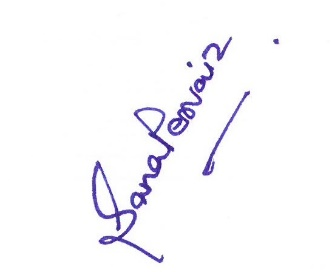 Sana Pervaiz